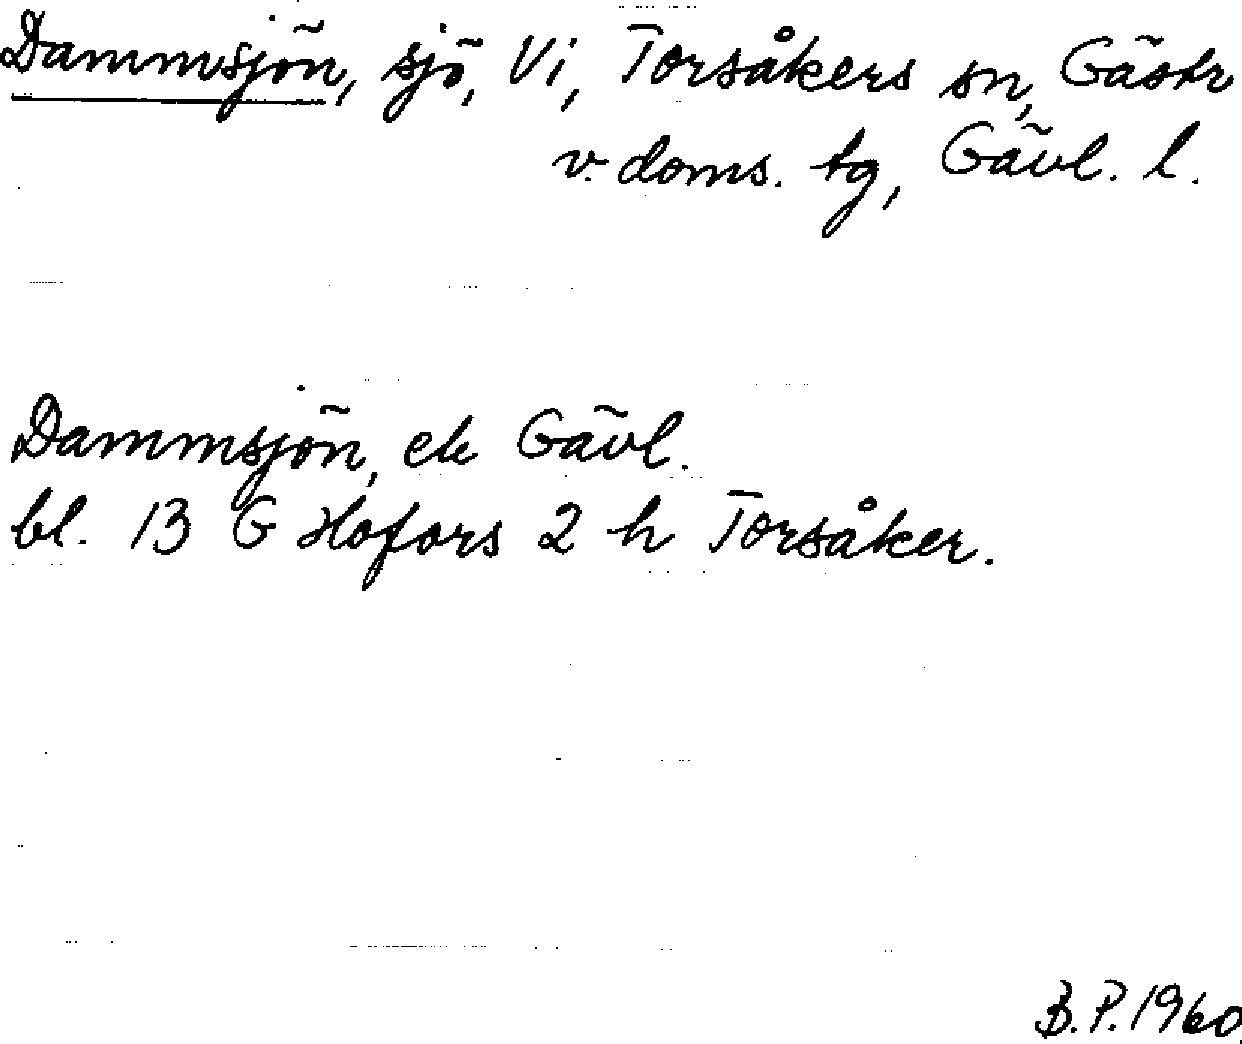 Dammsjön, sjö, Vi, Torsåkers sn, Gästr
v. doms. tg, Gävl. l.
Dammsjön, ek Gävl.
bl. 13 G Hofors 2 h Torsåker.
B.P. 1960.